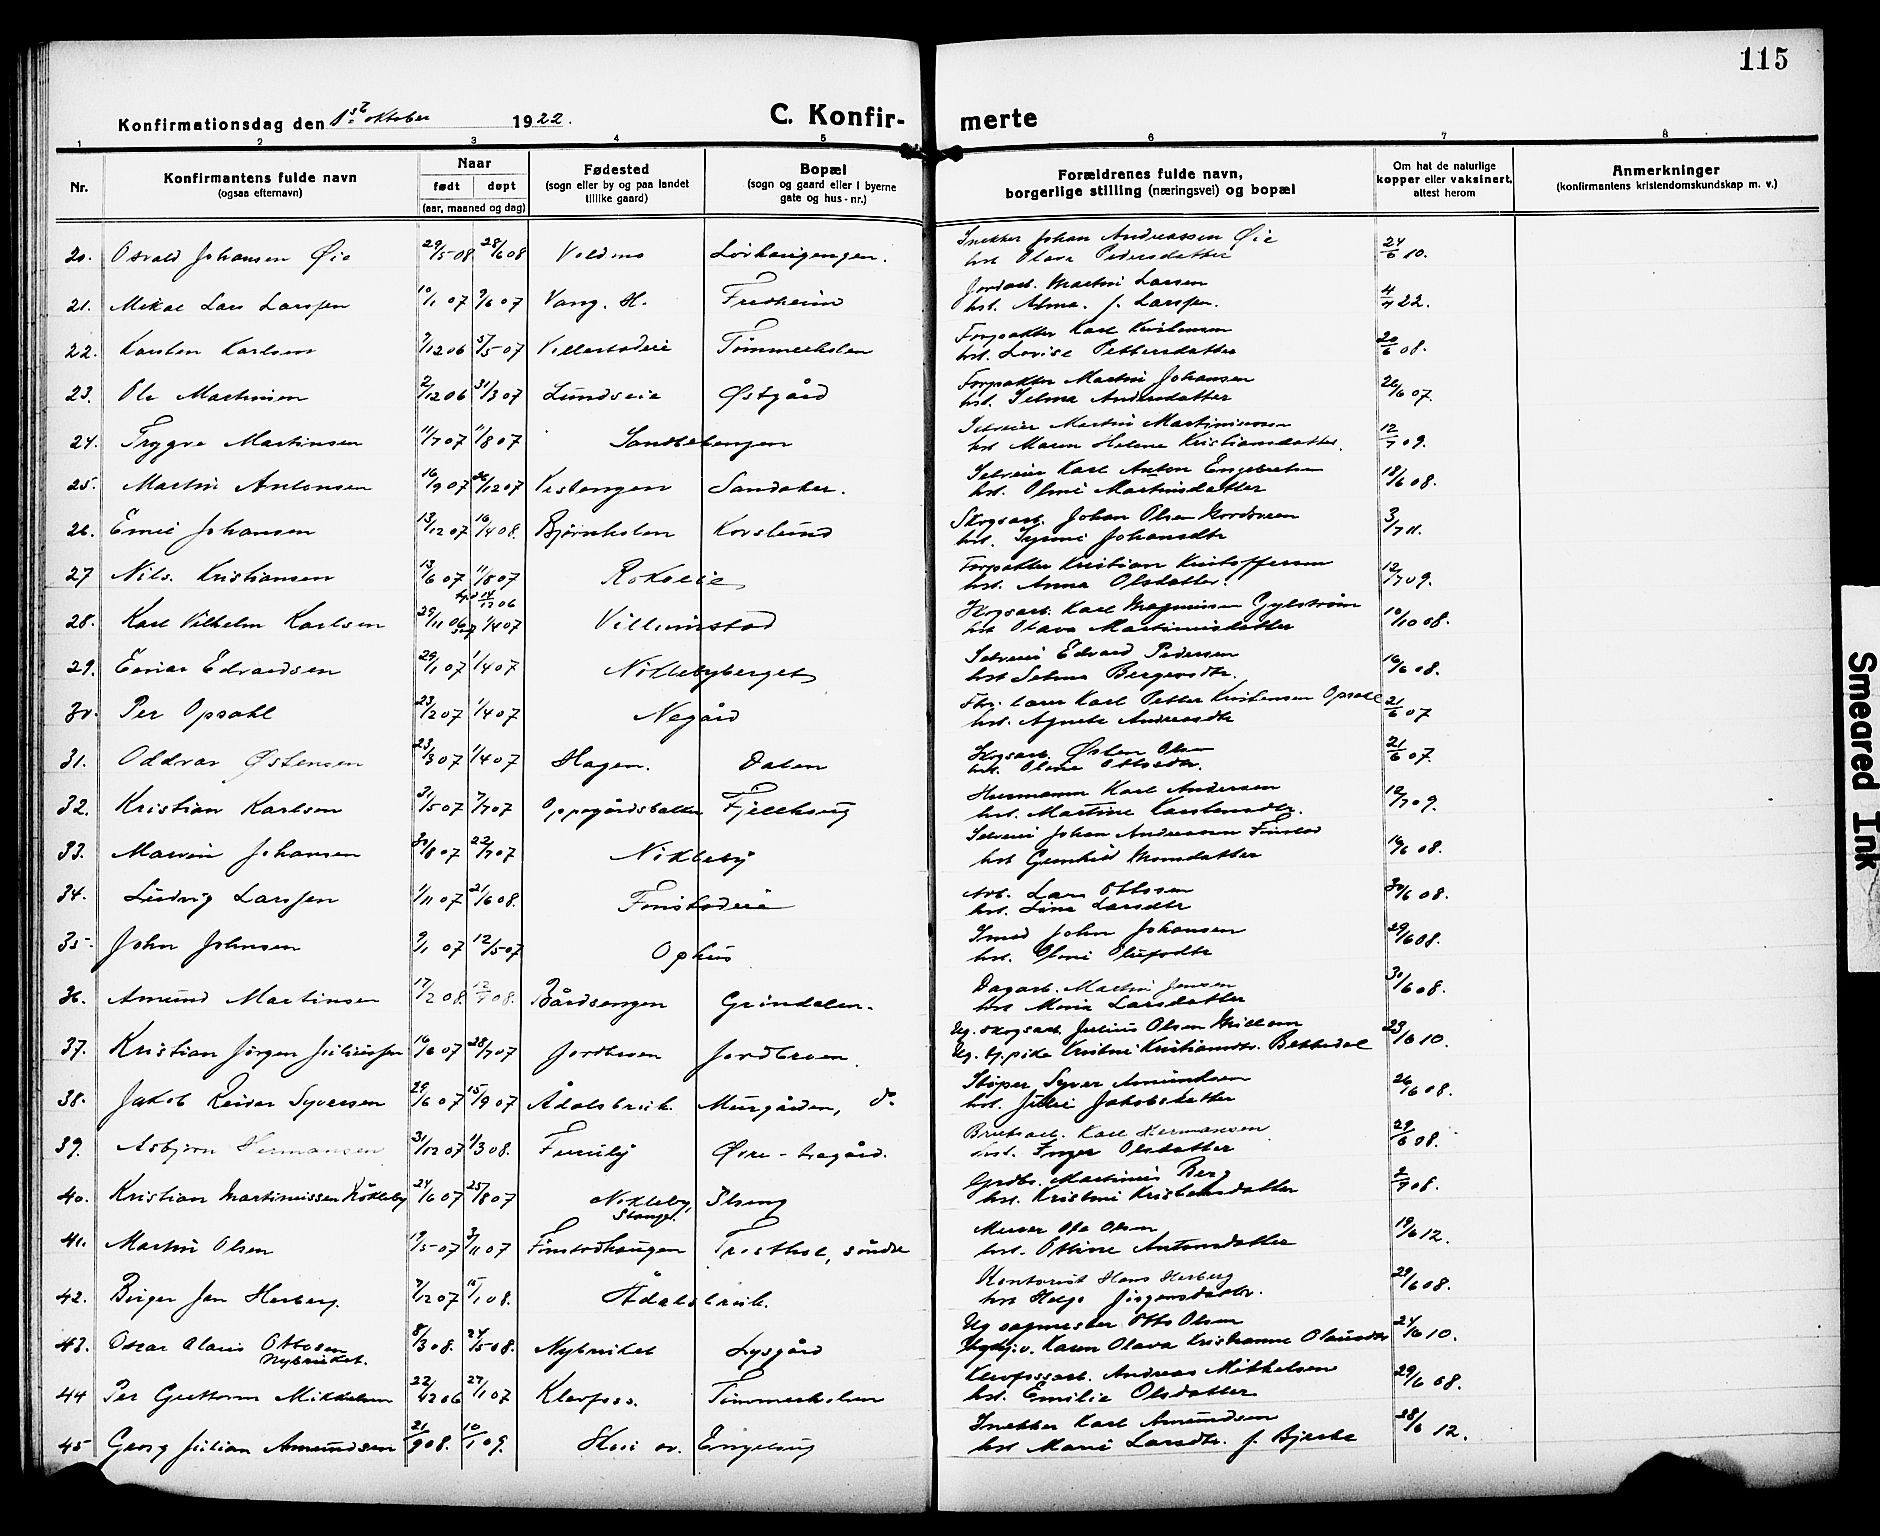 115
Konfirmationsdag den 1st oktober 1922.
C. Konfir- merte
1 2 3 4 5 6 7 8
Nr.
Konfirmantens fulde navn
(ogsaa efternavn)
Naar
født døpt
(aar, maaned og dag)
Fødested
(sogn eller by og paa landet
tillike gaard)
Bopæl
(sogn og gaard eller i byerne
gate og hus-nr.)
Forældrenes fulde navn,
borgerlige stilling (næringsvei) og bopæl
Om hat de naturlige
kopper eller vaksinert,
attest herom
Anmerkninger
(konfirmantens kristendomskundskap m. v.)
20. Osvald Johansen Øie 29/5 08 28/6 08 Voldmo Snekker Johan Andreassen Øie 24/6 10.
hst. Olava Pedersdatter
21. Mikal Lars Larssen 10/1 07 9/6 07 Vang. H. Fredheim Jordarb. Martin Larsen 4/7 22.
hst. Alma f. Larssen.
22. Karsten Karlsen 7/12 06 5/5 07 Tømmerholen Forpakter Karl Kristensen 20/6 08.
hst. Lovise Pettersdatter
23. Ole Martinsen 2/12 06 31/3 07 Lundseie Østgård Forpakter Martin Johansen 26/6 07.
hst. Selma Andersdatter
24. Trygve Martinsen 11/7 07 11/8 07 Selveier Martin Martinsen 12/7 09.
hst. Maren Helene Kristiansdatter.
25. Martin Antonsen 16/9 07 26/12 07 Vestengen Sandaker. Selveier Karl Anton Engebretsen 18/6 08.
hst. Oline Martinsdatter
26. Emil Johansen 13/12 07 16/4 08. Bjørnholen Korslund Skogsarb. Johan Olsen Nordsveen 3/7 11.
hst. Johansdtr
27 Nils. Kristiansen 13/6 07 11/8 07 Rokoeie Forpakter Kristian Kristoffersen 12/7 09.
hst. Anna Olsdatter.
28. Karl Vilhelm Karlsen 29/11 06 14/12 06 1/4 07 Villumstad Skogsarb. Karl Magnussen Gylstrøm 10/10 08.
hst Olava Martinusdatter
29. Einar Edvardsen 29/1 07 1/4 07 Nikkebyberget Selveier Edvard Pedersen 16/6 08.
hst Selma Bergersdtr.
30. Per Opsahl 23/2 07 1/4 07 Negård Fhv. lærer Karl Petter Kristensen Opsahl 21/6 07
hst. Agnete Andreasdtr
31. Oddvar Østensen 23/3 07 1/4 07 Hagen. Dalen Skogsarb. Østen Olsen 21/6 07.
hst. Oline Ottosdtr.
32. Kristian Karlsen 31/5 07 7/7 07 Oppegårdsbakken Fjellhaug Husmann Karl Andersen 12/7 09.
hst. Martine Karstensdtr.
33. Marvin Johansen 30/8 07 22/7 07 Nikleby Selveier Johan Andersen Finstad 16/6 08.
hst Gunhild Monsdatter
34. Ludvig Larssen 1/11 07 21/6 08. Finstadeie Arb. Lars Ottosen 30/6 08.
hst. Lina Larsdtr
35. John Johnsen 9/1 07 12/5 07 Ophus Smed John Johansen 29/6 08.
hst. Oline Olufsdtr
36. Amund Martinsen 17/2 08. 12/7 08. Bårdsengen Grindalen. Dagarb. Martin Jensen 30/6 08.
hst Maria Larsdatter
37. Kristian Jørgen Juliussen 16/6 07 28/7 07 Jordbroen Jordbroen. Ug. skogsarb. Julius Olsen 23/6 10.
Ug. tj.pike Kristine Kristiansdtr. Bekkedal
38. Jakob Reidar Syversen 29/6 07 15/9 07 Ådalsbruk. Murgården, do. Støper Syver Amundsen 26/6 08.
hst. Julie Jakobsdatter
39. Asbjørn Hermansen 31/12 07 1/3 08. Furuly Øvre-hagård. Bruksarb. Karl Hermansen 29/6 08.
hst. Inger Olsdatter
40. Kristian Martinussen Nökleby 24/6 07 25/8 07 Nökleby, Stange. Ilseng Grdbr. Martinus Berg 2/7 08.
hst. Kristine Kristensdatter
41. Martin Olsen 19/5 07 3/11 07 Finstadhaugen Fristhol, söndre Murer Ole Olsen 19/6 12.
hst. Otline Antonsdatter
42. Birger Jan Herberg. 7/12 07 15/1 08. Ådalsbruk. Kontorist Hans Herberg 29/6 08.
hst Helga Jörgensdatter.
43. Oscar Olaus Ottosen Nybruket. 8/3 08. 24/5 08. Nybruket Lysgård Ug sagmester Otto Olsen 24/6 10.
Karen Olava Kristianne Olausdtr
44 Per Guttorm Mikkelsen 22/12 06 27/1 07 Klevfoss. Tömmerholen Klevfossarb. Andreas Mikkelsen 29/6 08.
hst. Emilie Olsdatter
45 Georg Julian Amundsen 21/9 08. 10/1 09. Skei ov. Engehaug Snekker Karl Amundsen 28/6 12.
hst Marie Larsdtr. f. Bjerke
Smeared Ink